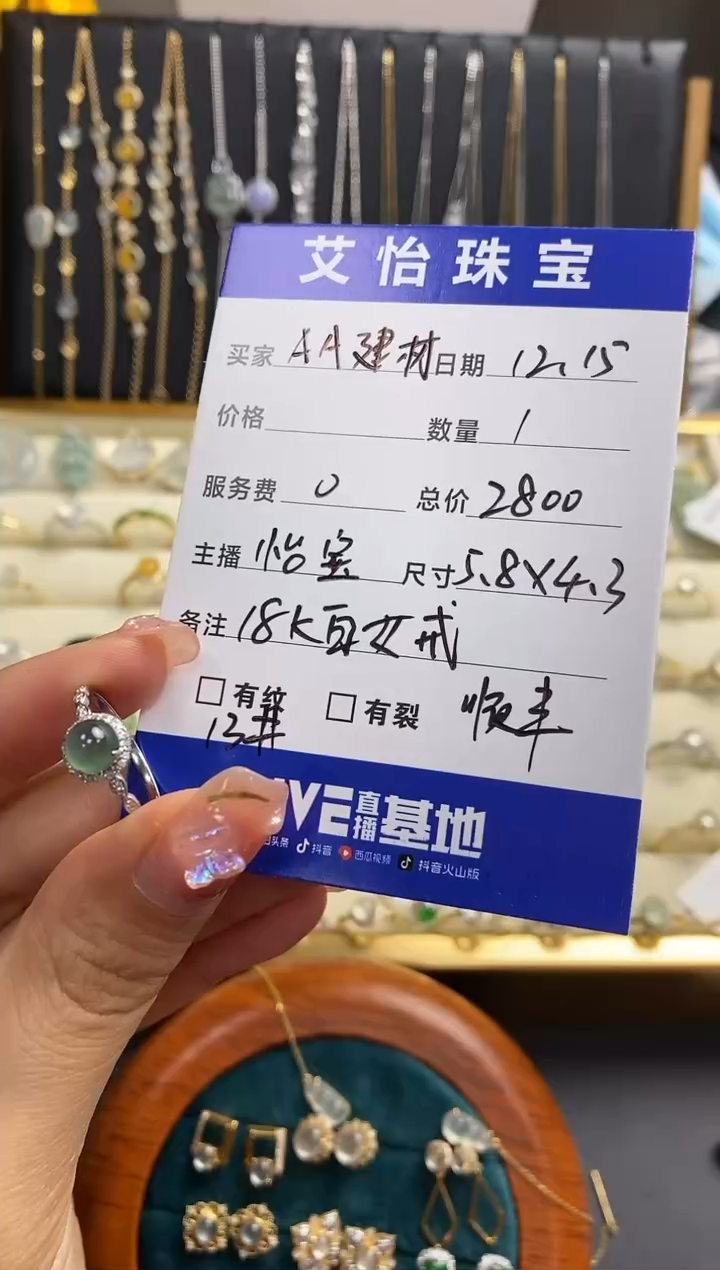 艾怡珠宝
买家 AA建材 日期 12.15
价格 数量 1
服务费 0 总价 2800
主播 怡宝 尺寸 5.8X4.3
备注 18K白女戒
有纹 有裂 顺丰
13#
IVE直播基地
头条 抖音 西瓜视频 抖音火山版